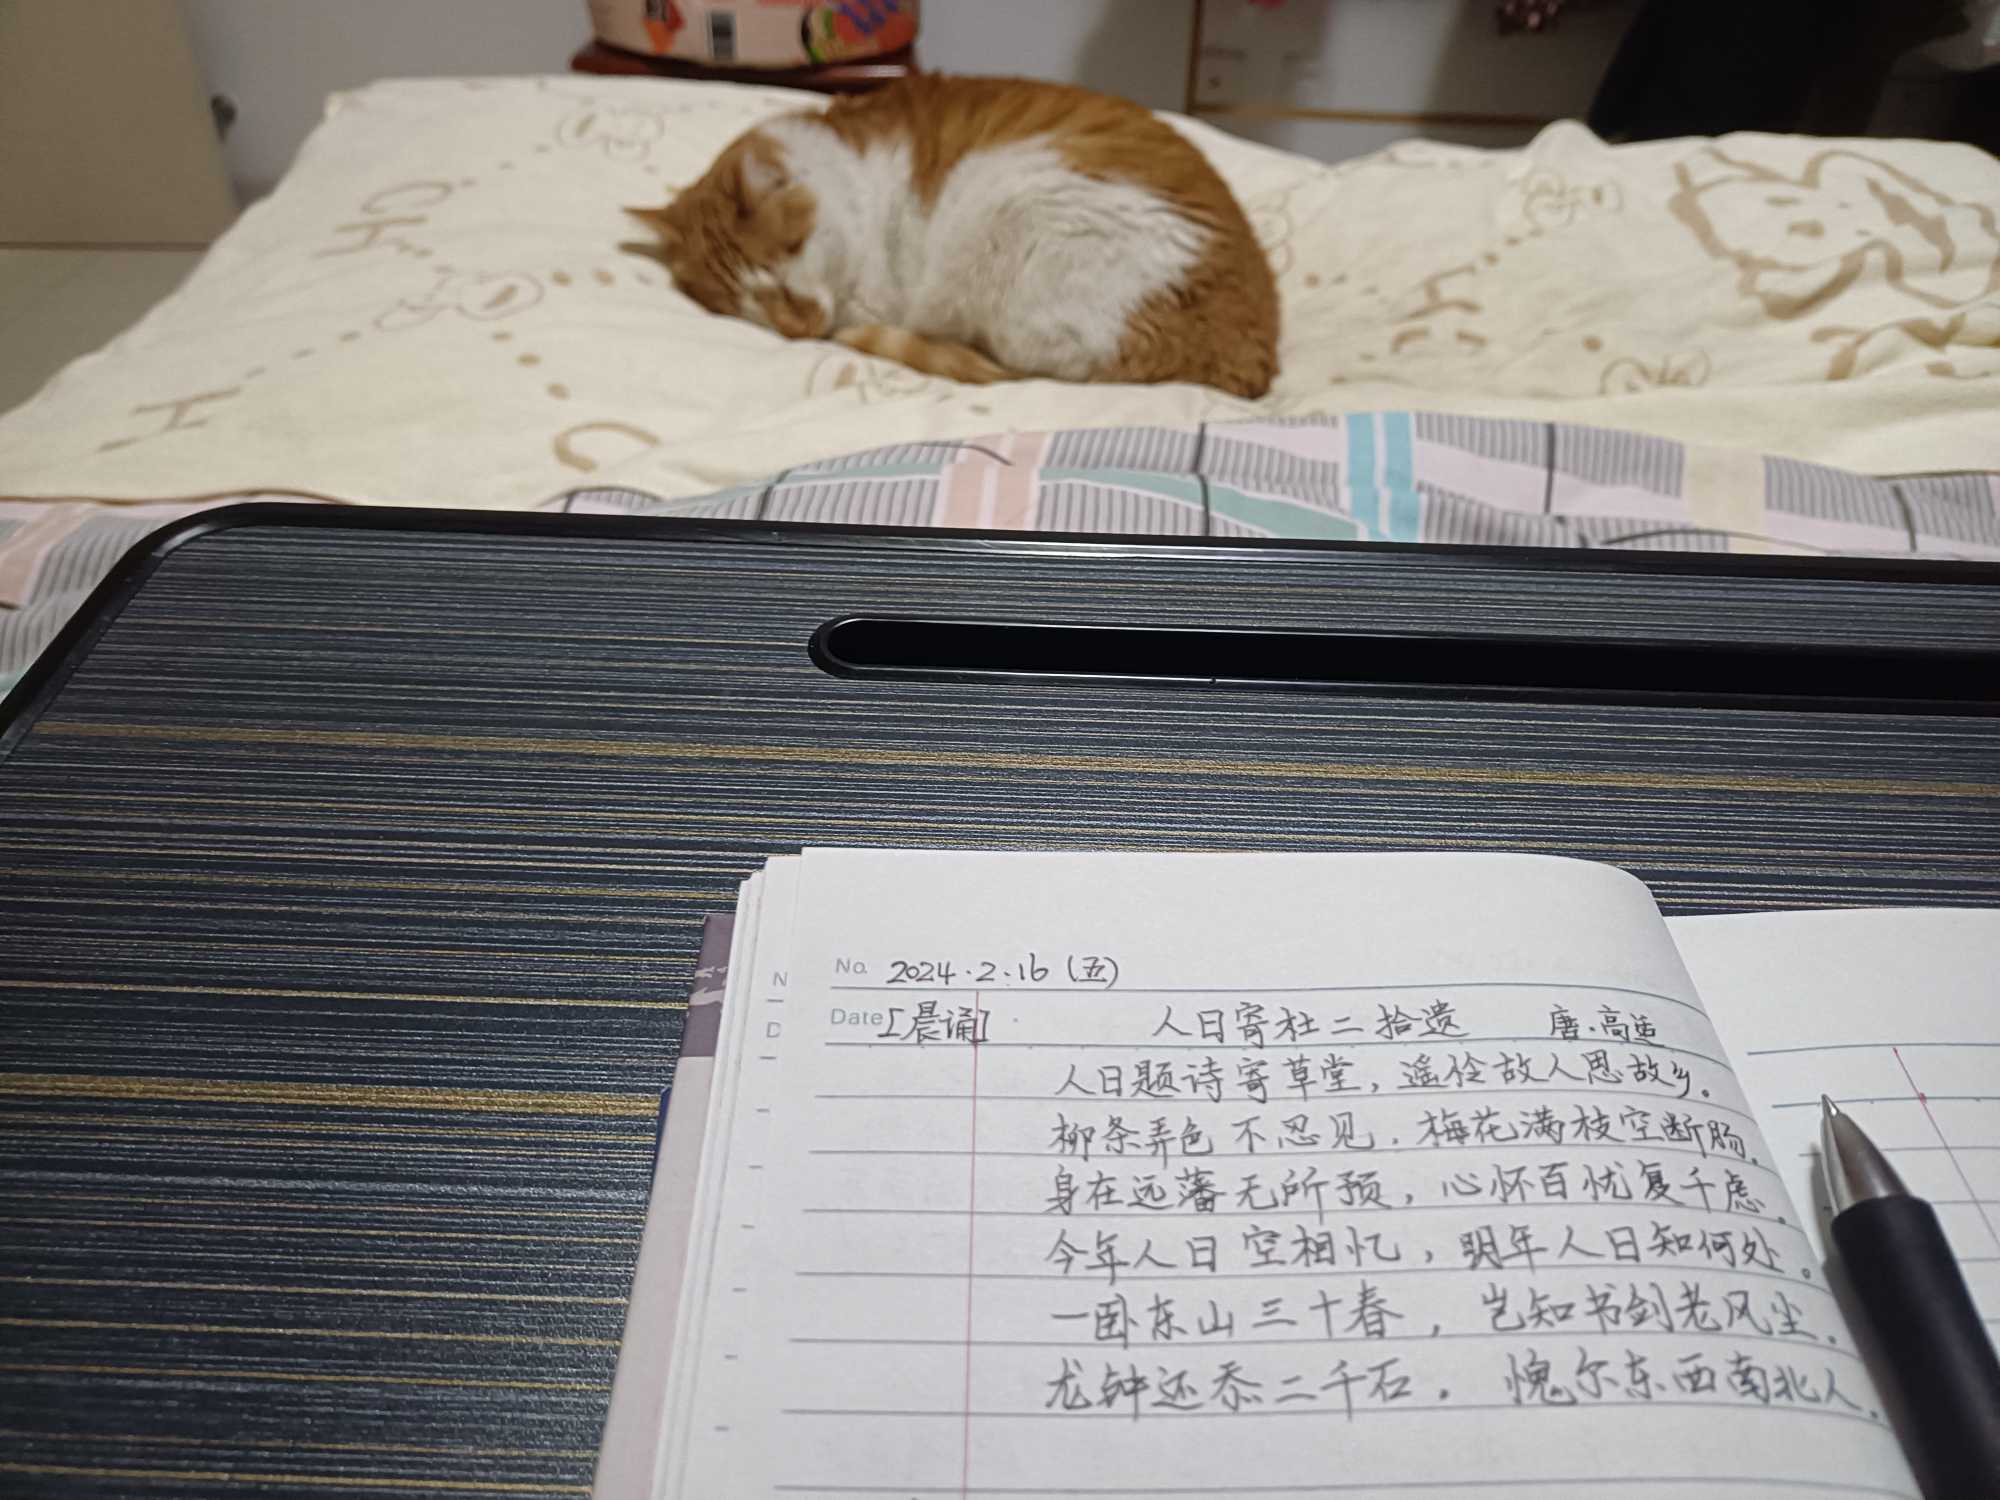 No. 2024.2.16(五)
Date [晨诵] 人日寄杜二拾遗 唐·高适
人日题诗寄草堂，遥怜故人思故乡。
柳条弄色不忍见，梅花满枝空断肠。
身在远藩无所预，心怀百忧复千虑。
今年人日空相忆，明年人日知何处。
一卧东山三十春，岂知书剑老风尘。
龙钟还忝二千石，愧尔东西南北人。